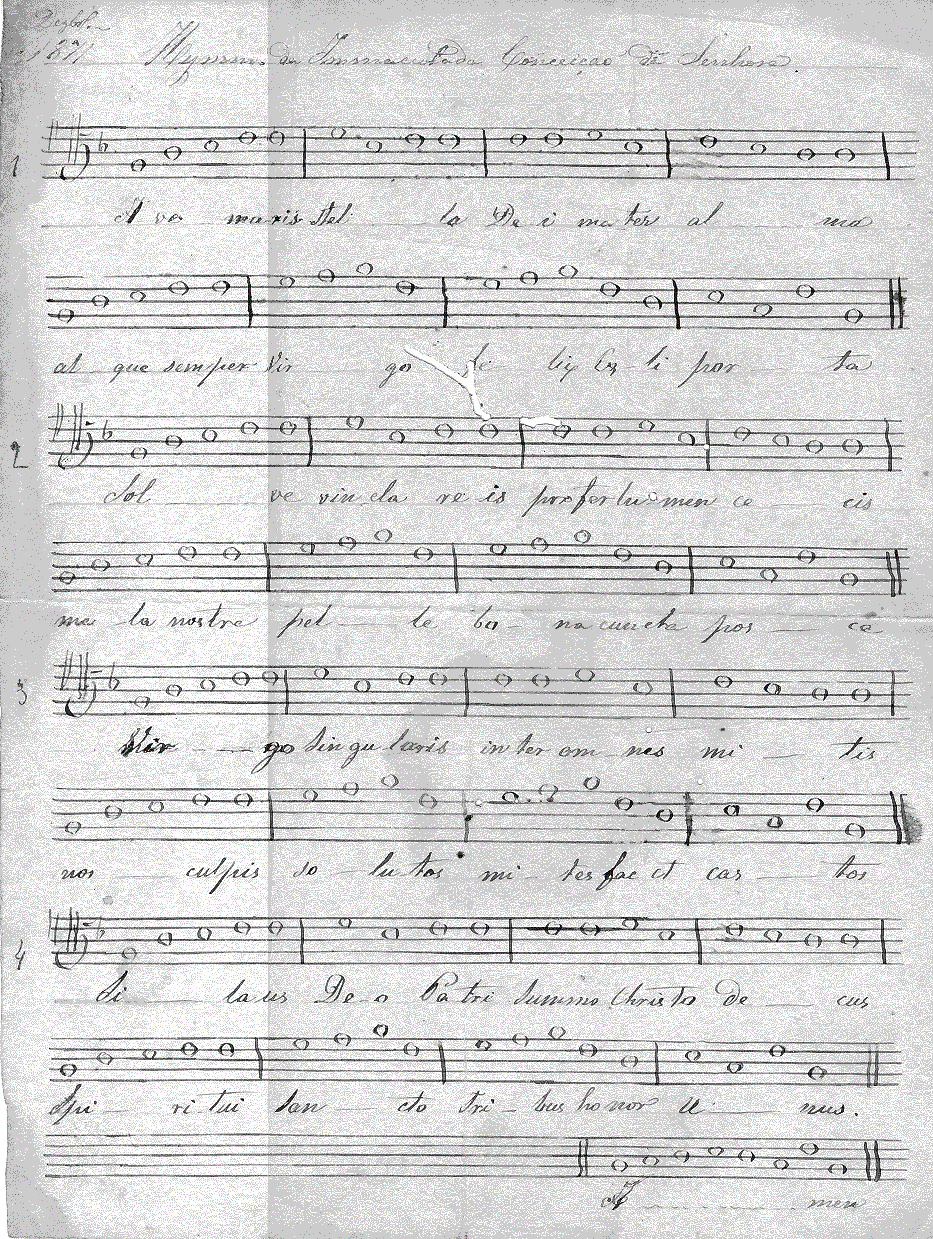 Dezbr.
1871
Hymno da Immaculada Conceição da Senhora
1
A ve maris stel la De i ma ter al ma
at que semper Vir go fe lix Cœ li por ta
2
Sol ve vin cla re is profer lu men ce cis
ma la nostra pel le bo na cuncta pos ce
3
Vir go singu laris in ter om nes mi tis
nos culpis so lu tos mi tes fac et cas tos
4
Si laus De o Pa tri summo Christo de cus
Spi ri tui San cto tri bus honor U nus.
A men